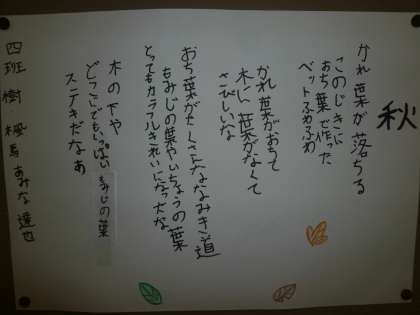 秋
かれ葉が落ちる
このじきに
おち葉で作った
ベットふわふわ
かれ葉がおちて
木に葉がなくて
さびしいな
おち葉がたくさんななみき道
もみじの葉やいちょうの葉
とってもカラフルきれいになったな
木の下や
どこにでもいっぱいもみじの葉
ステキだなあ
四班 樹 楓馬 あみな 達也